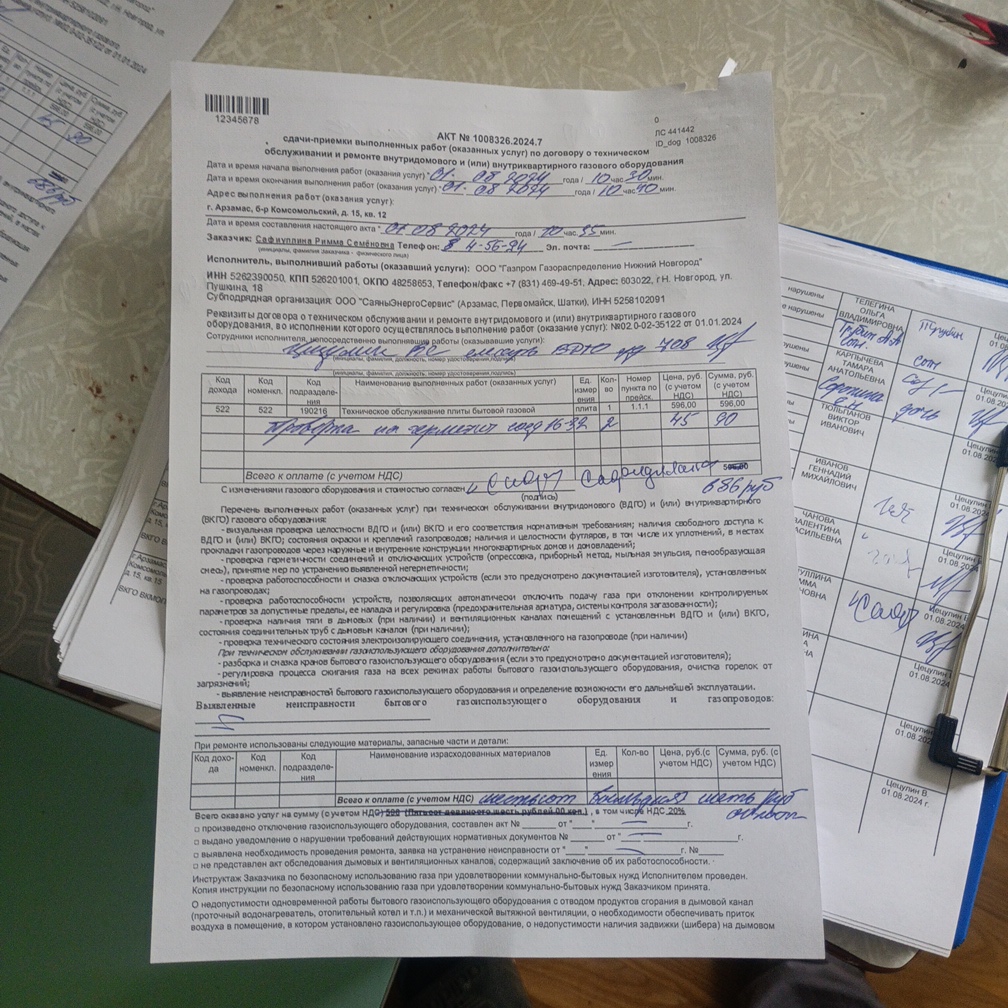 12345678
0
ЛС 441442
ID_dog 1008326
АКТ № 1008326.2024.7
сдачи-приемки выполненных работ (оказанных услуг) по договору о техническом
обслуживании и ремонте внутридомового и (или) внутриквартирного газового оборудования
Дата и время начала выполнения работ (оказания услуг) * 01. 08 2024 года / 10 час 30 мин.
Дата и время окончания выполнения работ (оказания услуг) * 01. 08 2024 года / 10 час 40 мин.
Адрес выполнения работ (оказания услуг):
г. Арзамас, б-р Комсомольский, д. 15, кв. 12
Дата и время составления настоящего акта * 01 08 2024 года / 10 час 35 мин.
Заказчик: Сафиуллина Римма Семёновна Телефон: 8 4-56-24 Эл. почта:
(инициалы, фамилия заказчика - физического лица)
Исполнитель, выполнивший работы (оказавший услуги): ООО "Газпром Газораспределение Нижний Новгород"
ИНН 5262390050, КПП 526201001, ОКПО 48258653, Телефон/факс +7 (831) 469-49-51, Адрес: 603022, г Н. Новгород, ул.
Пушкина, 18
Субподрядная организация: ООО "СаяныЭнергоСервис" (Арзамас, Первомайск, Шатки), ИНН 5258102091
Реквизиты договора о техническом обслуживании и ремонте внутридомового и (или) внутриквартирного газового
оборудования, во исполнении которого осуществлялось выполнение работ (оказание услуг): №02 0-02-35122 от 01.01.2024
Сотрудники исполнителя, непосредственно выполнявшие работы (оказывавшие услуги):
слесарь ВДГО 708
(инициалы, фамилия, должность, номер удостоверения,подпись)
Код дохода Код номенкл. Код подразделения Наименование выполненных работ (оказанных услуг) Ед. измерения Кол-во Номер пункта по прейск. Цена, руб. (с учетом НДС) Сумма, руб. (с учетом НДС)
522 522 190216 Техническое обслуживание плиты бытовой газовой плита 1 1.1.1 596,00 596,00
Проверка на герметич соед 16-32 2 45 90
Всего к оплате (с учетом НДС) 596,00
С изменениями газового оборудования и стоимостью согласен 686 руб
(подпись)
Перечень выполненных работ (оказанных услуг) при техническом обслуживании внутридомового (ВДГО) и (или) внутриквартирного
(ВКГО) газового оборудования:
- визуальная проверка целостности ВДГО и (или) ВКГО и его соответствия нормативным требованиям; наличия свободного доступа к
ВДГО и (или) ВКГО; состояния окраски и креплений газопроводов; наличия и целостности футляров, в том числе их уплотнений, в местах
прокладки газопроводов через наружные и внутренние конструкции многоквартирных домов и домовладений;
- проверка герметичности соединений и отключающих устройств (опрессовка, приборный метод, мыльная эмульсия, пенообразующая
смесь), принятие мер по устранению выявленной негерметичности;
- проверка работоспособности и смазка отключающих устройств (если это предусмотрено документацией изготовителя), установленных
на газопроводах;
- проверка работоспособности устройств, позволяющих автоматически отключить подачу газа при отклонении контролируемых
параметров за допустимые пределы, ее наладка и регулировка (предохранительная арматура, системы контроля загазованности);
- проверка наличия тяги в дымовых (при наличии) и вентиляционных каналах помещений с установленным ВДГО и (или) ВКГО,
состояния соединительных труб с дымовым каналом (при наличии);
- проверка технического состояния электроизолирующего соединения, установленного на газопроводе (при наличии)
При техническом обслуживании газоиспользующего оборудования дополнительно:
- разборка и смазка кранов бытового газоиспользующего оборудования (если это предусмотрено документацией изготовителя);
- регулировка процесса сжигания газа на всех режимах работы бытового газоиспользующего оборудования, очистка горелок от
загрязнений;
- выявление неисправностей бытового газоиспользующего оборудования и определение возможности его дальнейшей эксплуатации.
Выявленные неисправности бытового газоиспользующего оборудования и газопроводов:
При ремонте использованы следующие материалы, запасные части и детали:
Код дохода Код номенкл. Код подразделения Наименование израсходованных материалов Ед. измерения Кол-во Цена, руб.(с учетом НДС) Сумма, руб. (с учетом НДС)
Всего к оплате (с учетом НДС) шестьсот восемьдесят шесть руб
Всего оказано услуг на сумму (с учетом НДС) 596 (Пятьсот девяносто шесть рублей 00 коп.) , в том числе НДС 20%
□ произведено отключение газоиспользующего оборудования, составлен акт № ______ от "___"________г.
□ выдано уведомление о нарушении требований действующих нормативных документов № ______ от "___"________г.
□ выявлена необходимость проведения ремонта, заявка на устранение неисправности от "___"________г. № ____
□ не представлен акт обследования дымовых и вентиляционных каналов, содержащий заключение об их работоспособности.
Инструктаж Заказчика по безопасному использованию газа при удовлетворении коммунально-бытовых нужд Исполнителем проведен.
Копия инструкции по безопасному использованию газа при удовлетворении коммунально-бытовых нужд Заказчиком принята.
О недопустимости одновременной работы бытового газоиспользующего оборудования с отводом продуктов сгорания в дымовой канал
(проточный водонагреватель, отопительный котел и т.п.) и механической вытяжной вентиляции, о необходимости обеспечивать приток
воздуха в помещение, в котором установлено газоиспользующее оборудование, о недопустимости наличия задвижки (шибера) на дымовом
нарушены
ТЕЛЕГИНА
ОЛЬГА
ВЛАДИМИРОВНА
КАРПЫЧЕВА
ТАМАРА
АНАТОЛЬЕВНА
дочь
ТЮЛЬПАНОВ
ВИКТОР
ИВАНОВИЧ
ИВАНОВ
ГЕННАДИЙ
МИХАЙЛОВИЧ
Цецулин В
01.08.2024 г.